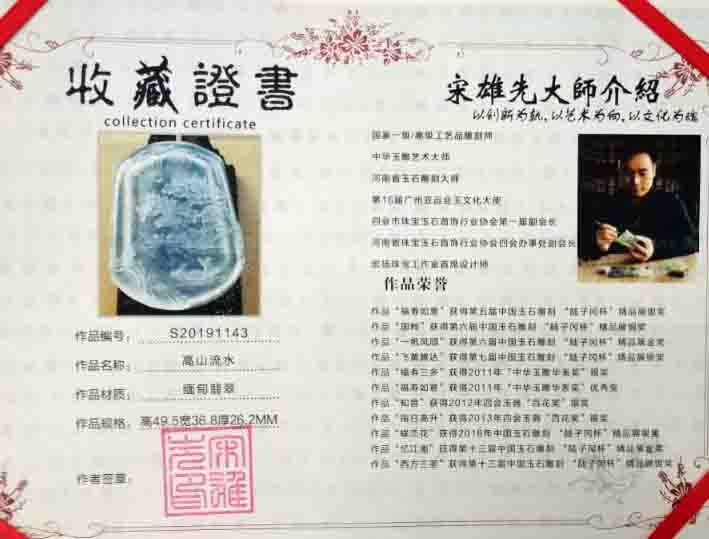 收藏證書
collection certificate
作品编号：S20191143
作品名称：高山流水
作品材质：缅甸翡翠
作品规格：高49.5宽36.8厚26.2MM
作者签章：
宋雄先大師介紹
以创新为轨，以艺术为向，以文化为魂
国家一级/高级工艺品雕刻师
中华玉雕艺术大师
河南省玉石雕刻大师
第16届广州亚运会玉文化大使
四会市珠宝玉石首饰行业协会第一届副会长
河南省珠宝玉石首饰行业协会四会办事处副会长
珠宝工作室首席设计师
作品荣誉
作品“福寿如意”获得第五届中国玉石雕刻“陆子冈杯”精品展银奖
作品“国粹”获得第六届中国玉石雕刻“陆子冈杯”精品展铜奖
作品“一帆风顺”获得第六届中国玉石雕刻“陆子冈杯”精品展金奖
作品“飞黄腾达”获得第七届中国玉石雕刻“陆子冈杯”精品展银奖
作品“福寿三多”获得2011年“中华玉雕华表奖”银奖
作品“福寿如意”获得2011年“中华玉雕华表奖”优秀奖
作品“知音”获得2012年四会玉器“百花奖”银奖
作品“指日高升”获得2013年四会玉器“百花奖”银奖
作品“蝶恋花”获得2016年中国玉石雕刻“陆子冈杯”精品展银奖
作品“忆江南”获得第十三届中国玉石雕刻“陆子冈杯”精品展金奖
作品“西方三圣”获得第十三届中国玉石雕刻“陆子冈杯”精品展银奖